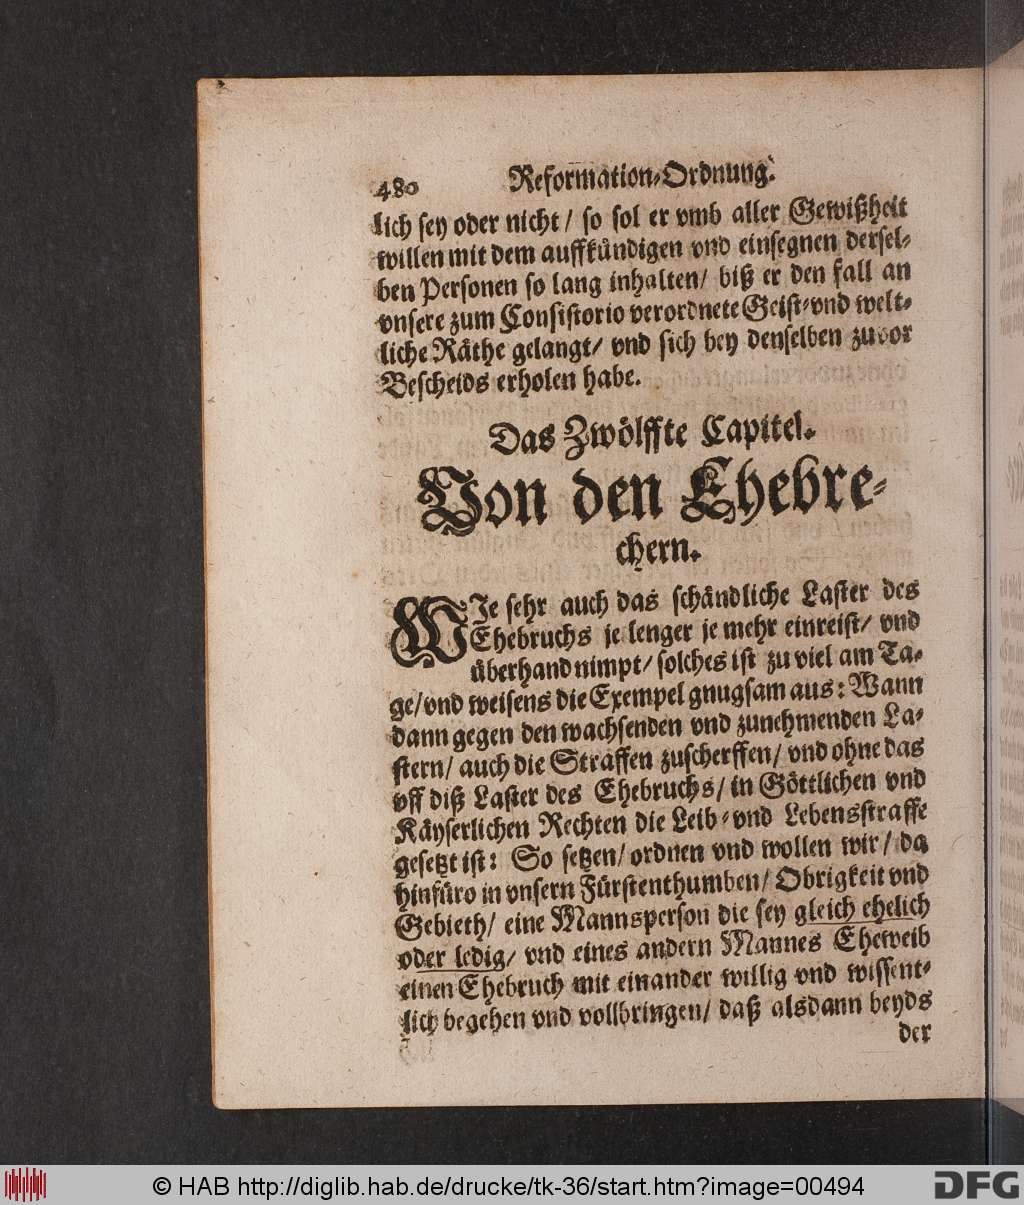 480 Reformation-Ordnung.
lich sey oder nicht / so sol er vmb aller Gewißheit
willen mit dem auffkündigen vnd einsegnen dersel-
ben Personen so lang inhalten / biß er den fall an
vnsere zum Consistorio verordnete Geist- vnd welt-
liche Räthe gelangt / vnd sich bey denselben zuvor
Bescheids erholen habe.
Das Zwölffte Capitel.
Von den Ehebre-
chern.
WJe sehr auch das schändliche Laster des
Ehebruchs je lenger je mehr einreist / vnd
überhand nimpt / solches ist zu viel am Ta-
ge / vnd weisens die Exempel gnugsam aus: Wann
dann gegen den wachsenden vnd zunehmenden La-
stern / auch die Straffen zuscherffen / vnd ohne das
vff diß Laster des Ehebruchs / in Göttlichen vnd
Käyserlichen Rechten die Leib- vnd Lebensstraffe
gesetzt ist: So setzen / ordnen vnd wollen wir / da
hinfüro in vnsern Fürstenthumben / Obrigkeit vnd
Gebieth / eine Mannsperson die sey gleich ehelich
oder ledig / vnd eines andern Mannes Eheweib
einen Ehebruch mit einander willig vnd wissent-
lich begehen vnd vollbringen / daß alsdann beyds
der
© HAB http://diglib.hab.de/drucke/tk-36/start.htm?image=00494
DFG